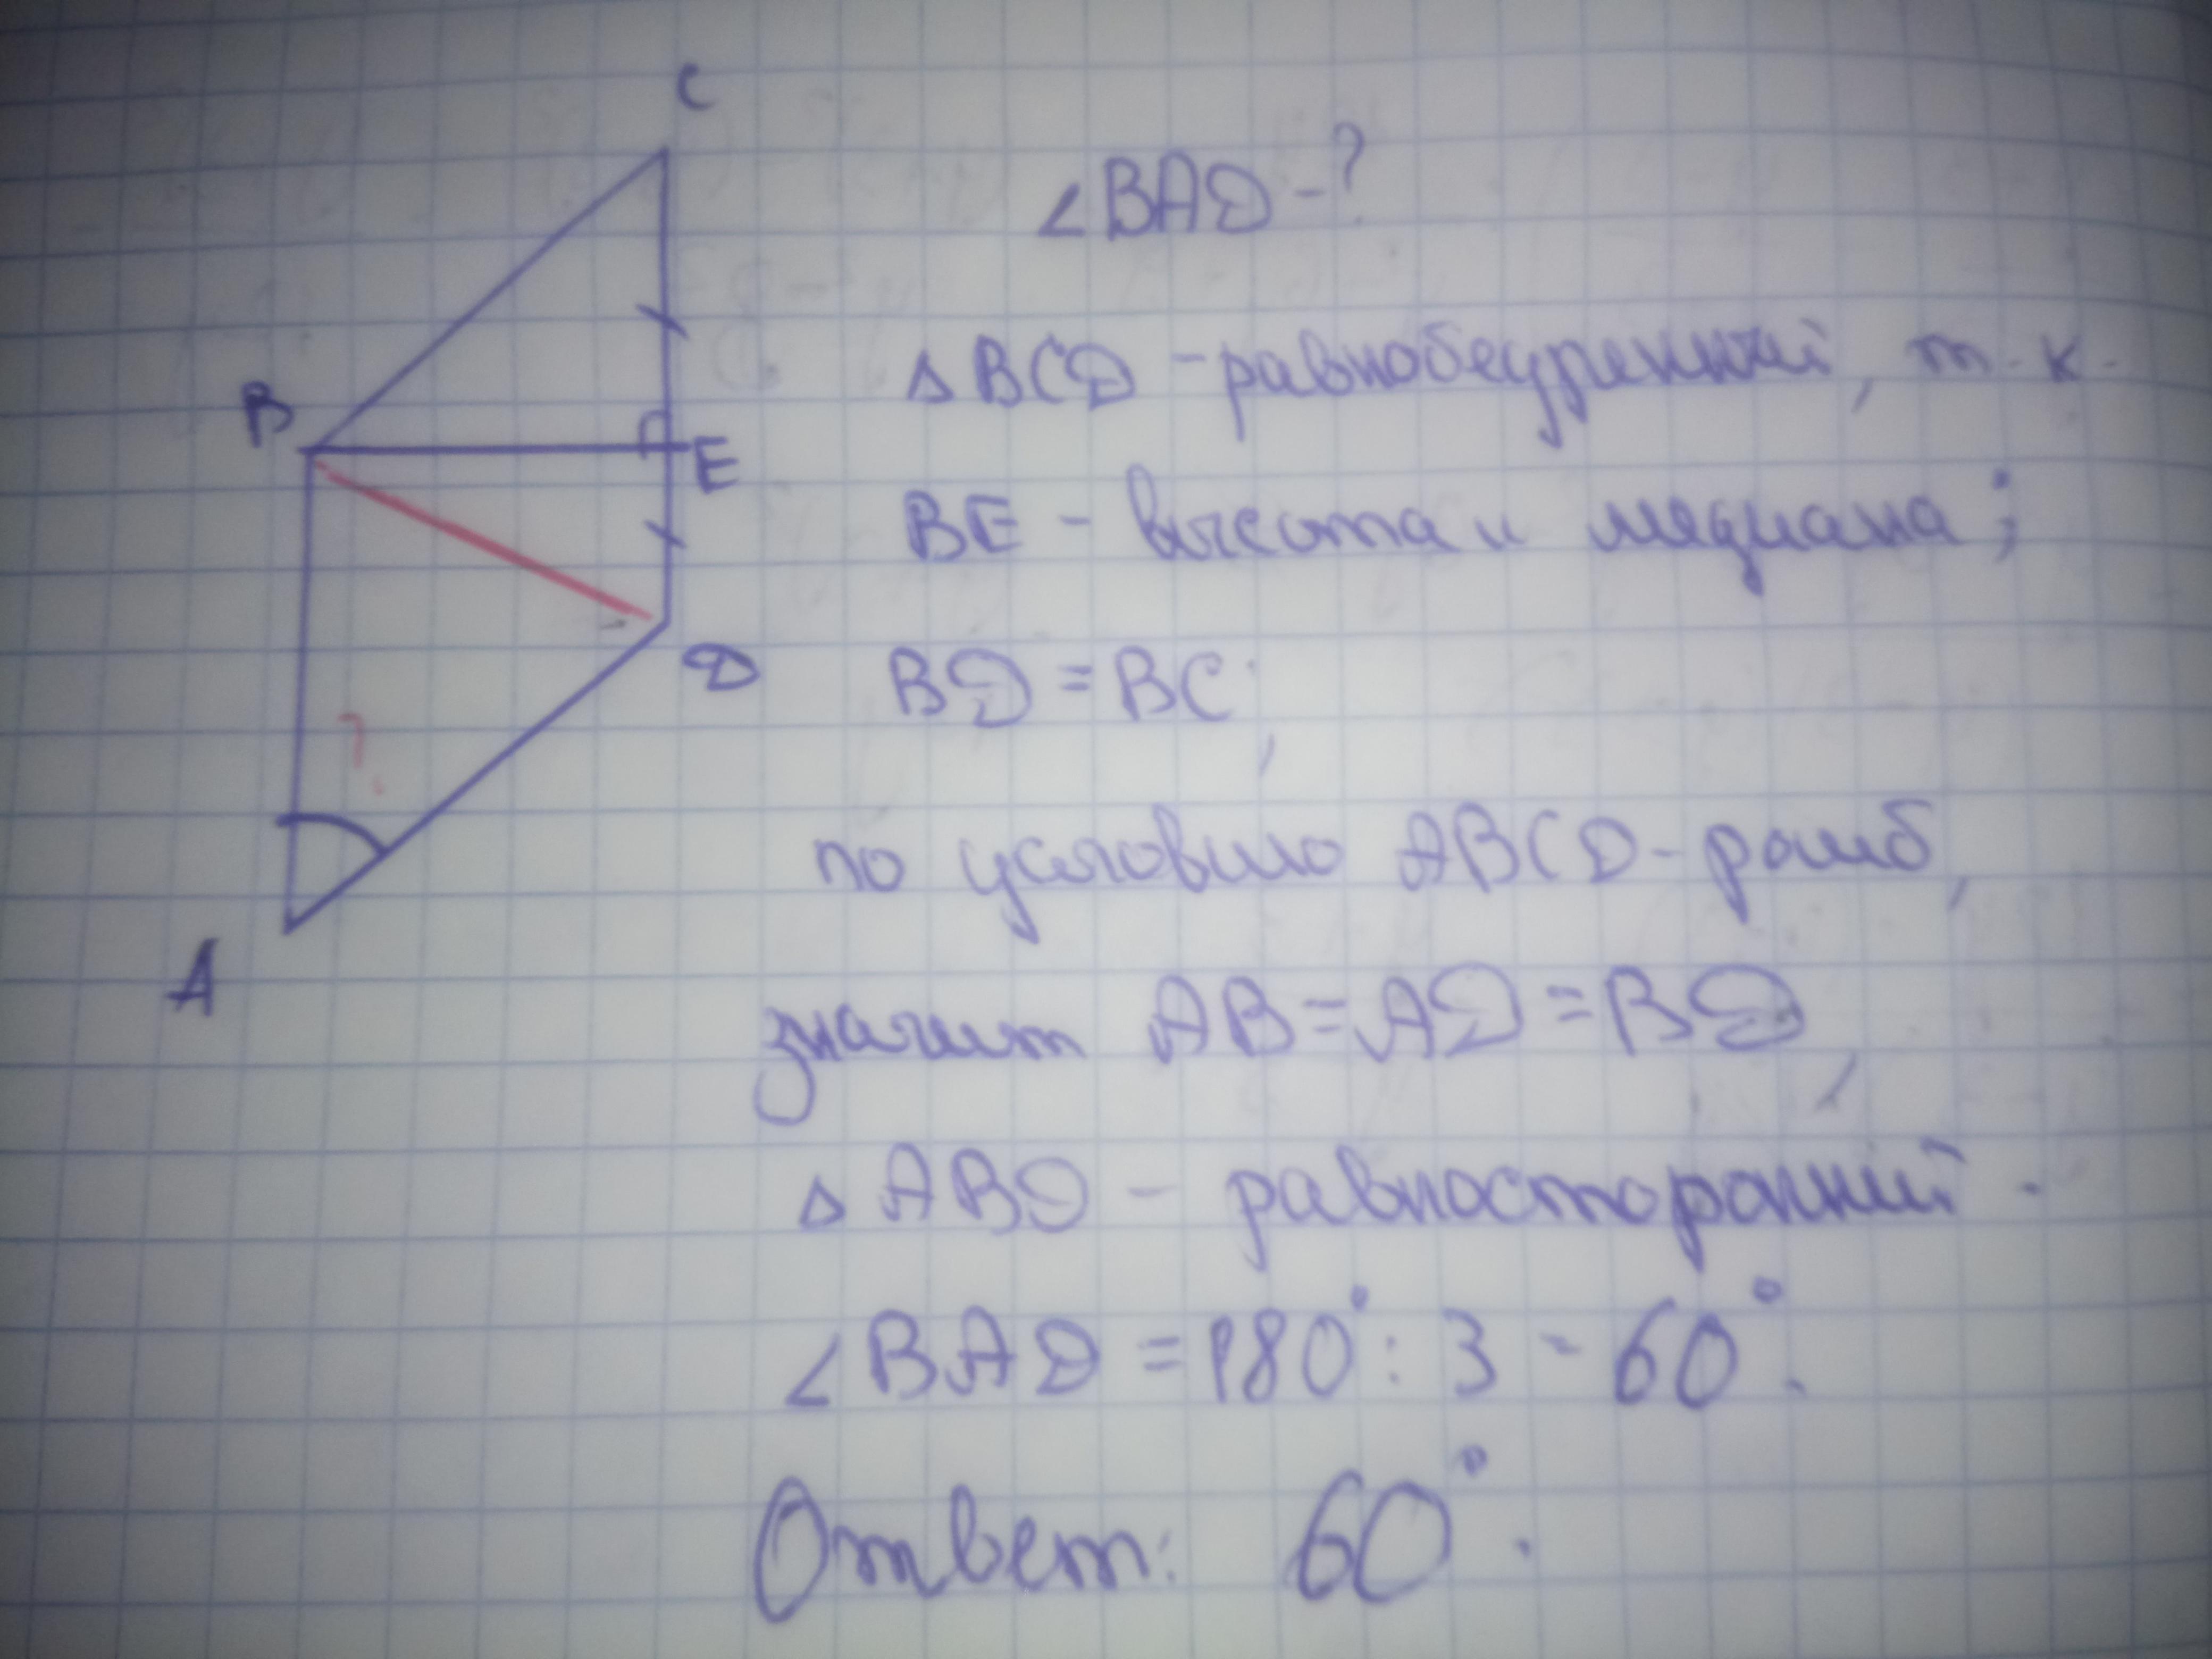 C
∠BAD - ?
ΔBCD - равнобедренный, т.к.
B
E
BE - высота и медиана;
D
BD = BC,
?
по условию ABCD - ромб,
A
значит AB = AD = BD,
ΔABD - равносторонний.
∠BAD = 180° : 3 = 60°.
Ответ: 60°.